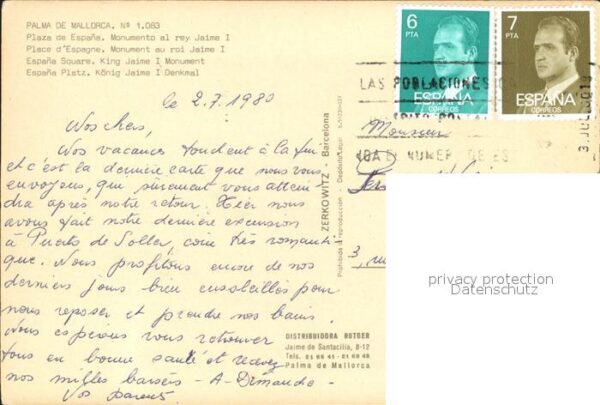 PALMA DE MALLORCA. Nº 1.083
Plaza de España. Monumento al rey Jaime I
Place d'Espagne. Monument au roi Jaime I
España Square. King Jaime I Monument
España Platz. König Jaime I Denkmal
6
PTA
ESPAÑA
CORREOS
7
PTA
ESPAÑA
CORREOS
LAS POBLACIONES
le 2.7.1980
Nos chers,
Nos vacances touchent à la fin
et c'est la dernière carte que nous vous
envoyons, que sûrement vous attein
dra après notre retour. Hier nous
avons fait notre dernière excursion
à Puerto de Soller, coin très romanti
que. Nous profitons encore de nos
derniers jours bien ensoleillés pour
nous reposer et prendre nos bains.
Nous espérons vous retrouver
tous en bonne santé et recevez
nos milles baisers - A - Dimanche -
Vos parents
Monsieur
3,
ZERKOWITZ - Barcelona
Prohibida la reproducción
DISTRIBUIDORA ROTGER
Jaime de Santacilia, 8-12
Palma de Mallorca
privacy protection
Datenschutz